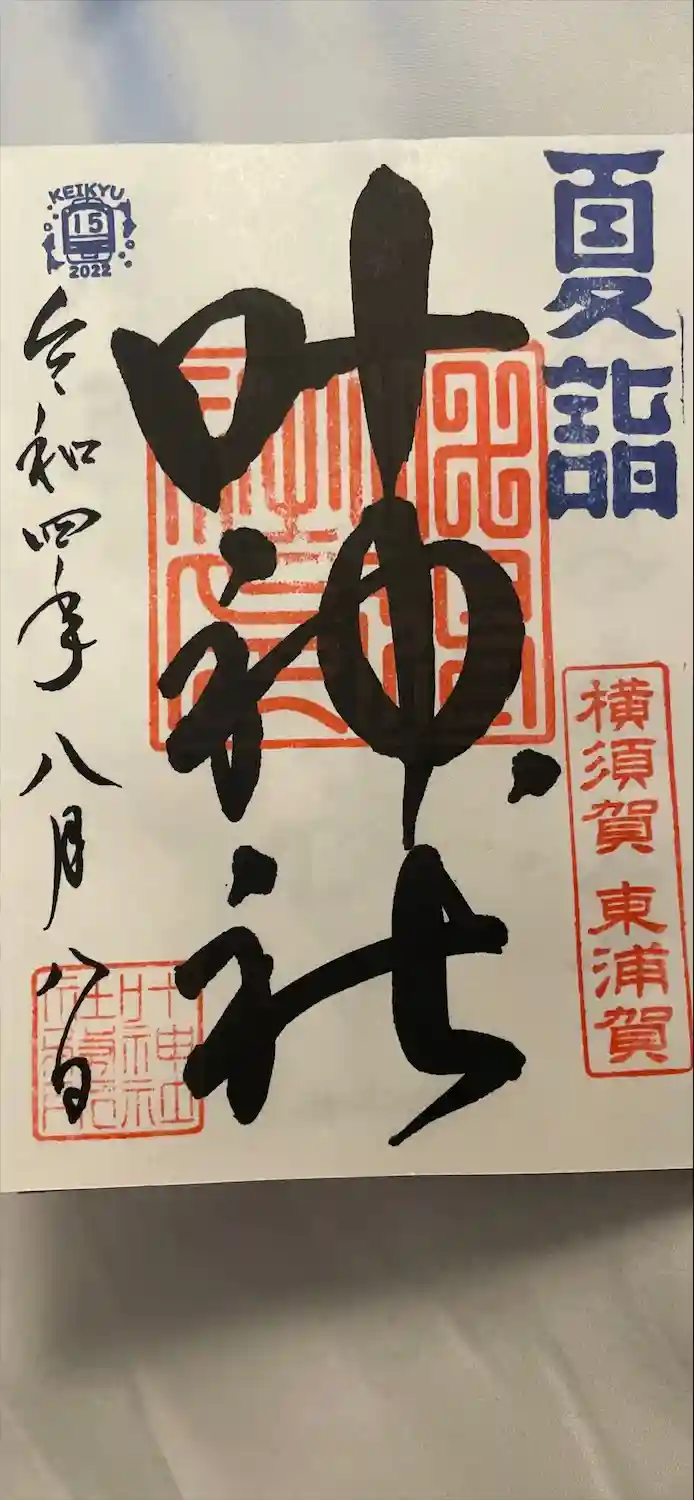 夏詣
横須賀 東浦賀
叶神社
令和四年 八月 八日
KEIKYU
15
2022
叶神社
社務所印